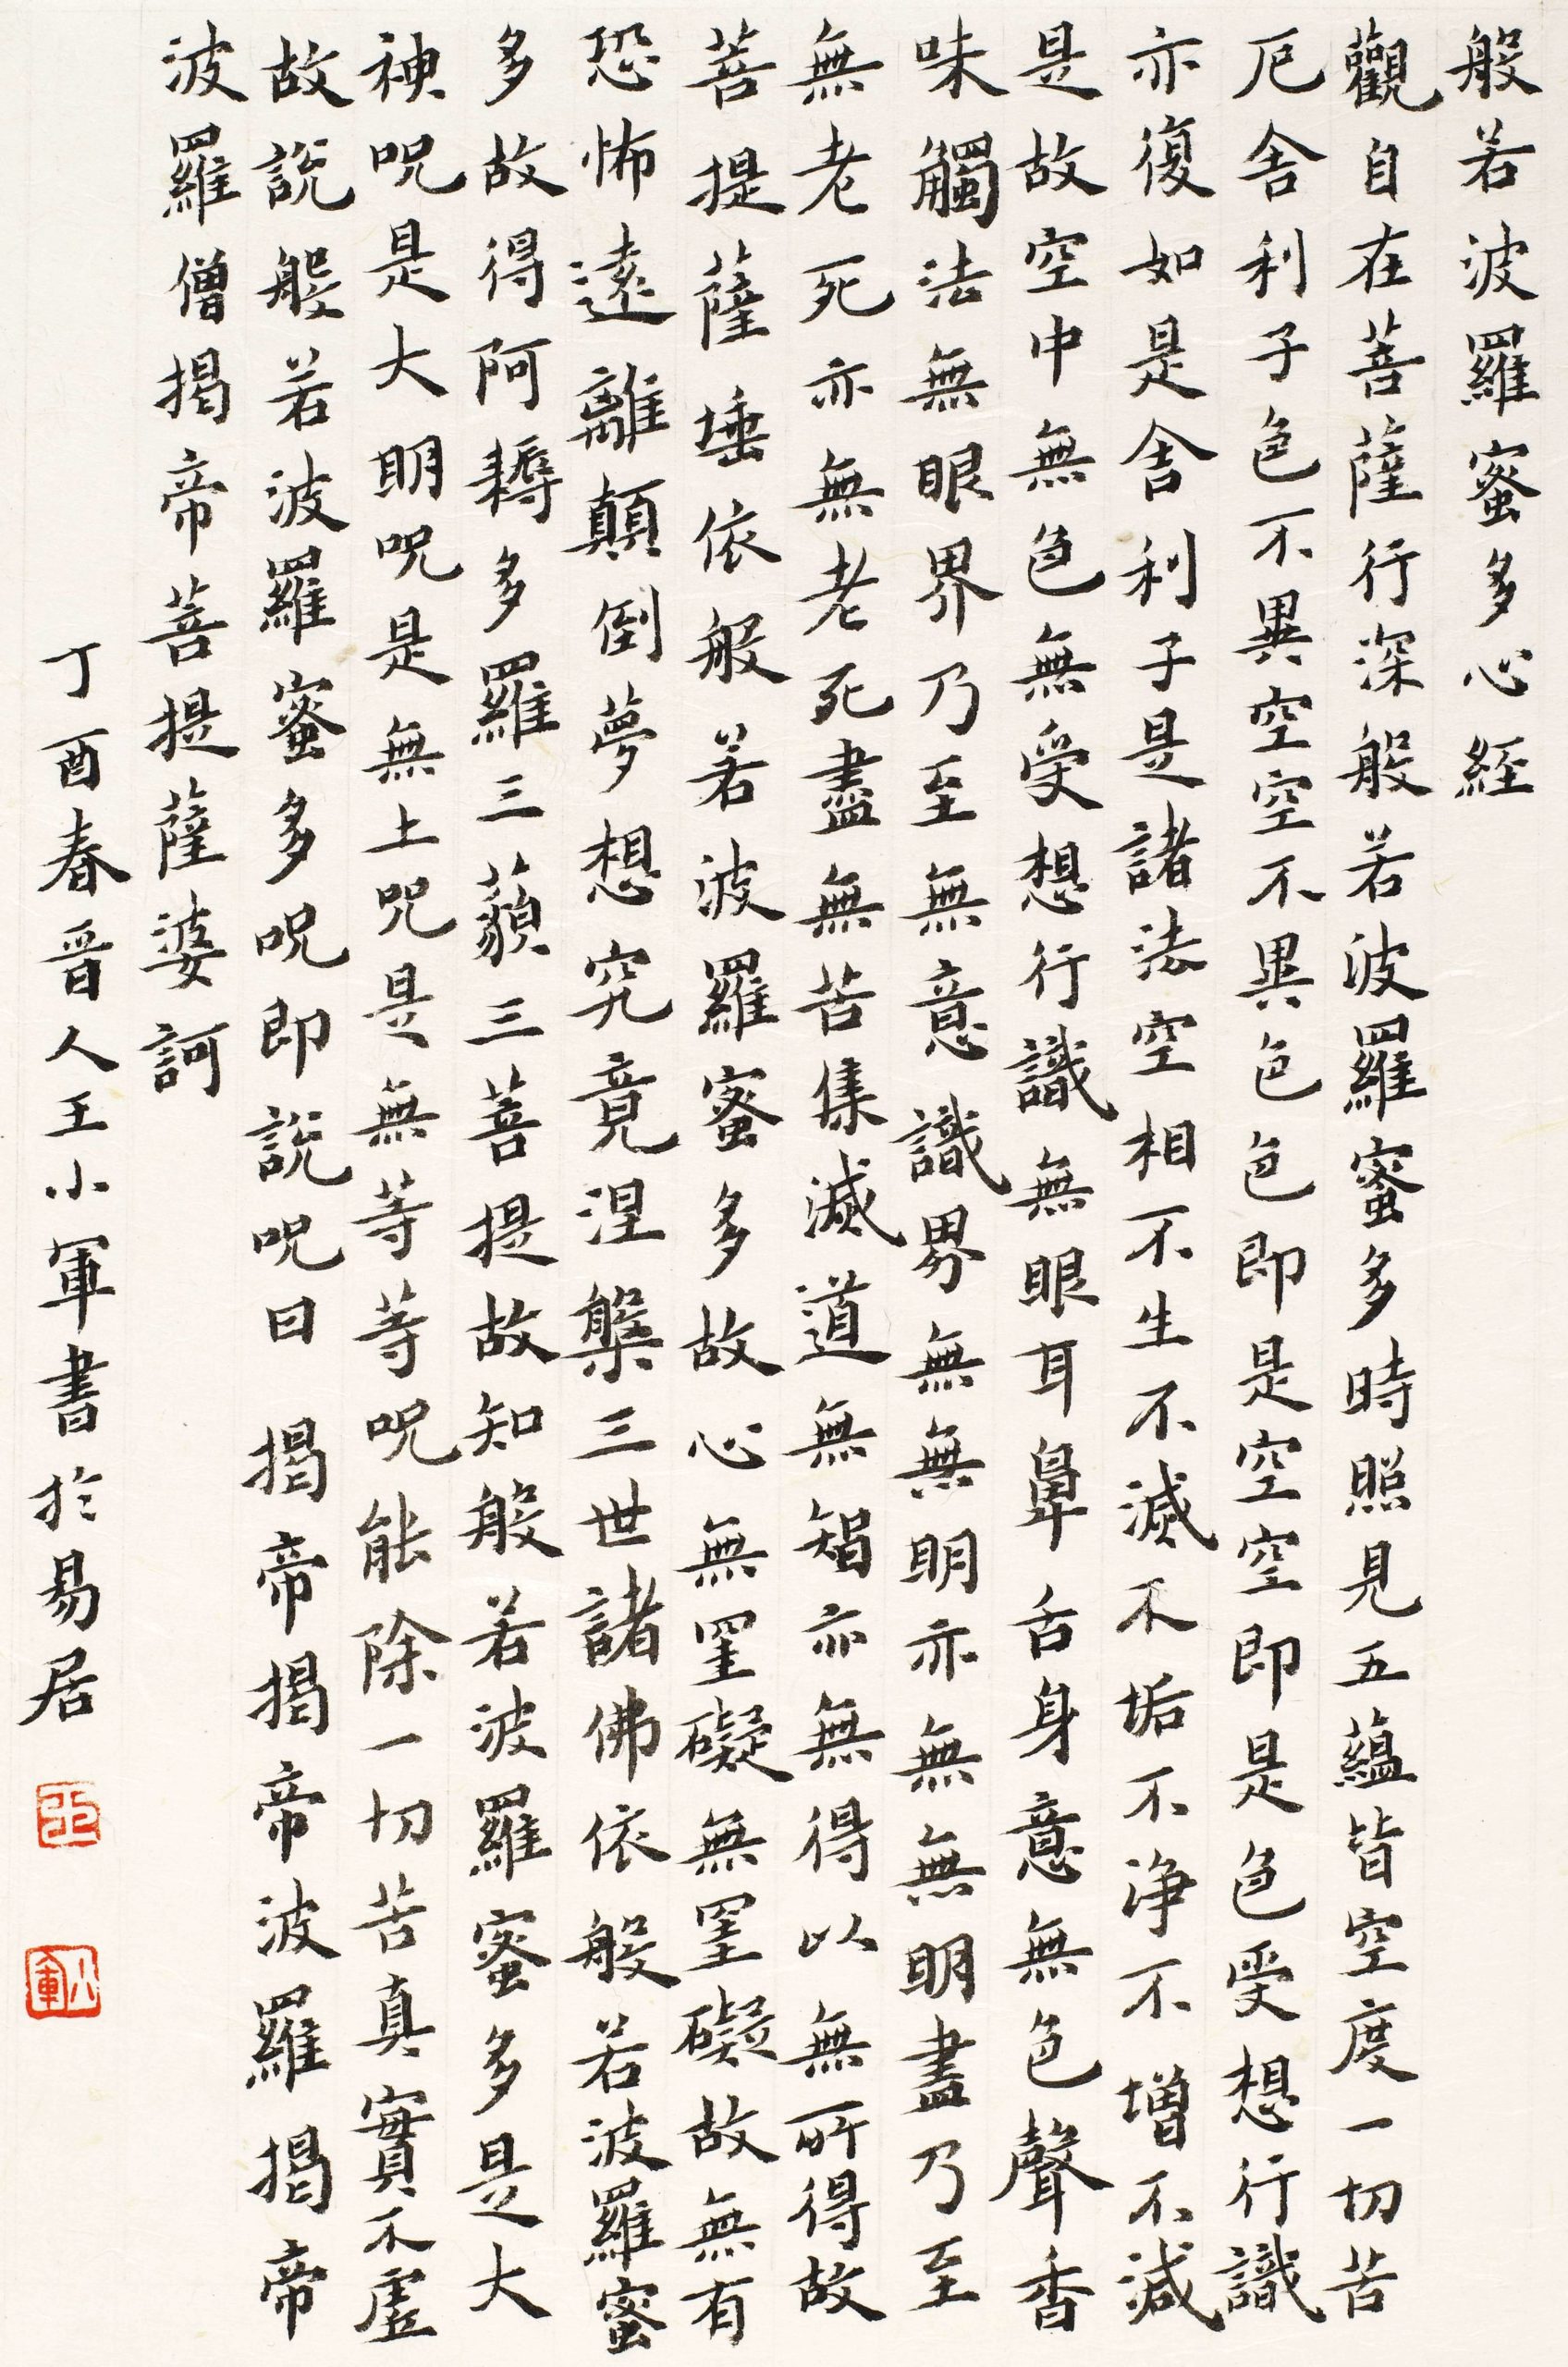 般若波羅蜜多心經
觀自在菩薩行深般若波羅蜜多時照見五蘊皆空度一切苦
厄舍利子色不異空空不異色色即是空空即是色受想行識
亦復如是舍利子是諸法空相不生不滅不垢不淨不增不減
是故空中無色無受想行識無眼耳鼻舌身意無色聲香
味觸法無眼界乃至無意識界無無明亦無無明盡乃至
無老死亦無老死盡無苦集滅道無智亦無得以無所得故
菩提薩埵依般若波羅蜜多故心無罣礙無罣礙故無有
恐怖遠離顛倒夢想究竟涅槃三世諸佛依般若波羅蜜
多故得阿耨多羅三藐三菩提故知般若波羅蜜多是大
神呪是大明呪是無上呪是無等等呪能除一切苦真實不虛
故說般若波羅蜜多呪即說呪曰揭帝揭帝波羅揭帝
波羅僧揭帝菩提薩婆訶
丁酉春晉人王小軍書於易居
王
小軍